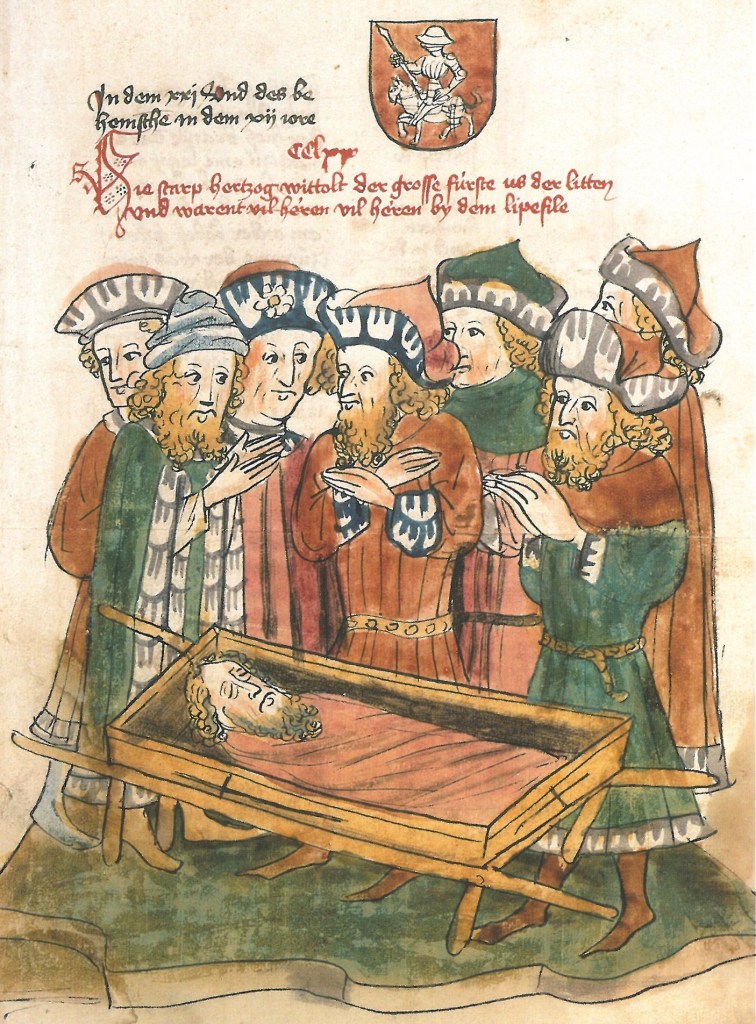 In dem xxj und des be
hemsche in dem xij iore
CClxx
Sie starp hertzog wittolt der grosse fürste us der litten
Und warent vil heren vil heren by dem lipefile